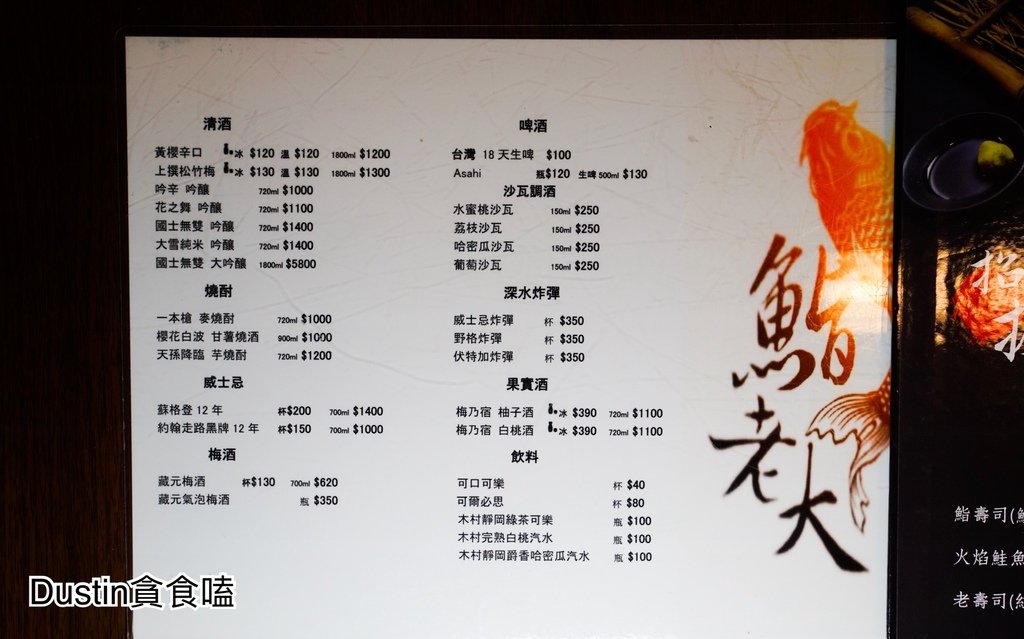 清酒
黃櫻辛口 冰 $120 溫 $120 1800ml $1200
上撰松竹梅 冰 $130 溫 $130 1800ml $1300
吟辛 吟釀 720ml $1000
花之舞 吟釀 720ml $1100
國士無雙 吟釀 720ml $1400
大雪純米 吟釀 720ml $1400
國士無雙 大吟釀 1800ml $5800
燒酎
一本槍 麥燒酎 720ml $1000
櫻花白波 甘薯燒酒 900ml $1000
天孫降臨 芋燒酎 720ml $1200
威士忌
蘇格登 12 年 杯$200 700ml $1400
約翰走路黑牌 12 年 杯$150 700ml $1000
梅酒
藏元梅酒 杯$130 700ml $620
藏元氣泡梅酒 瓶 $350
啤酒
台灣 18 天生啤 $100
Asahi 瓶$120 生啤 500ml $130
沙瓦調酒
水蜜桃沙瓦 150ml $250
荔枝沙瓦 150ml $250
哈密瓜沙瓦 150ml $250
葡萄沙瓦 150ml $250
深水炸彈
威士忌炸彈 杯 $350
野格炸彈 杯 $350
伏特加炸彈 杯 $350
果實酒
梅乃宿 柚子酒 冰 $390 720ml $1100
梅乃宿 白桃酒 冰 $390 720ml $1100
飲料
可口可樂 杯 $40
可爾必思 杯 $80
木村靜岡綠茶可樂 瓶 $100
木村完熟白桃汽水 瓶 $100
木村靜岡爵香哈密瓜汽水 瓶 $100
鮨老大
招
鮨壽司(
火焰鮭魚
老壽司(
Dustin貪食嗑